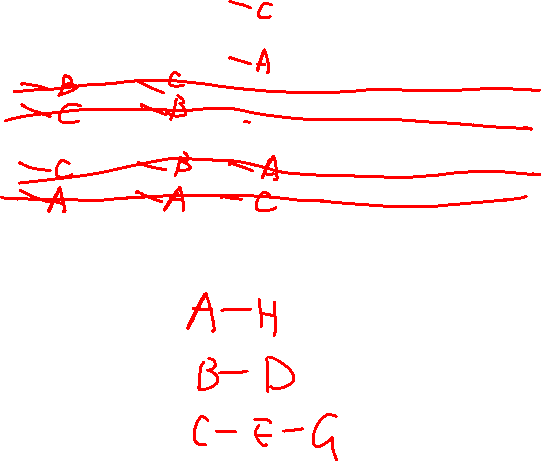 - C
- A
- B - C
- C - B
- C - B - A
- A - A - C
A - H
B - D
C - E - G